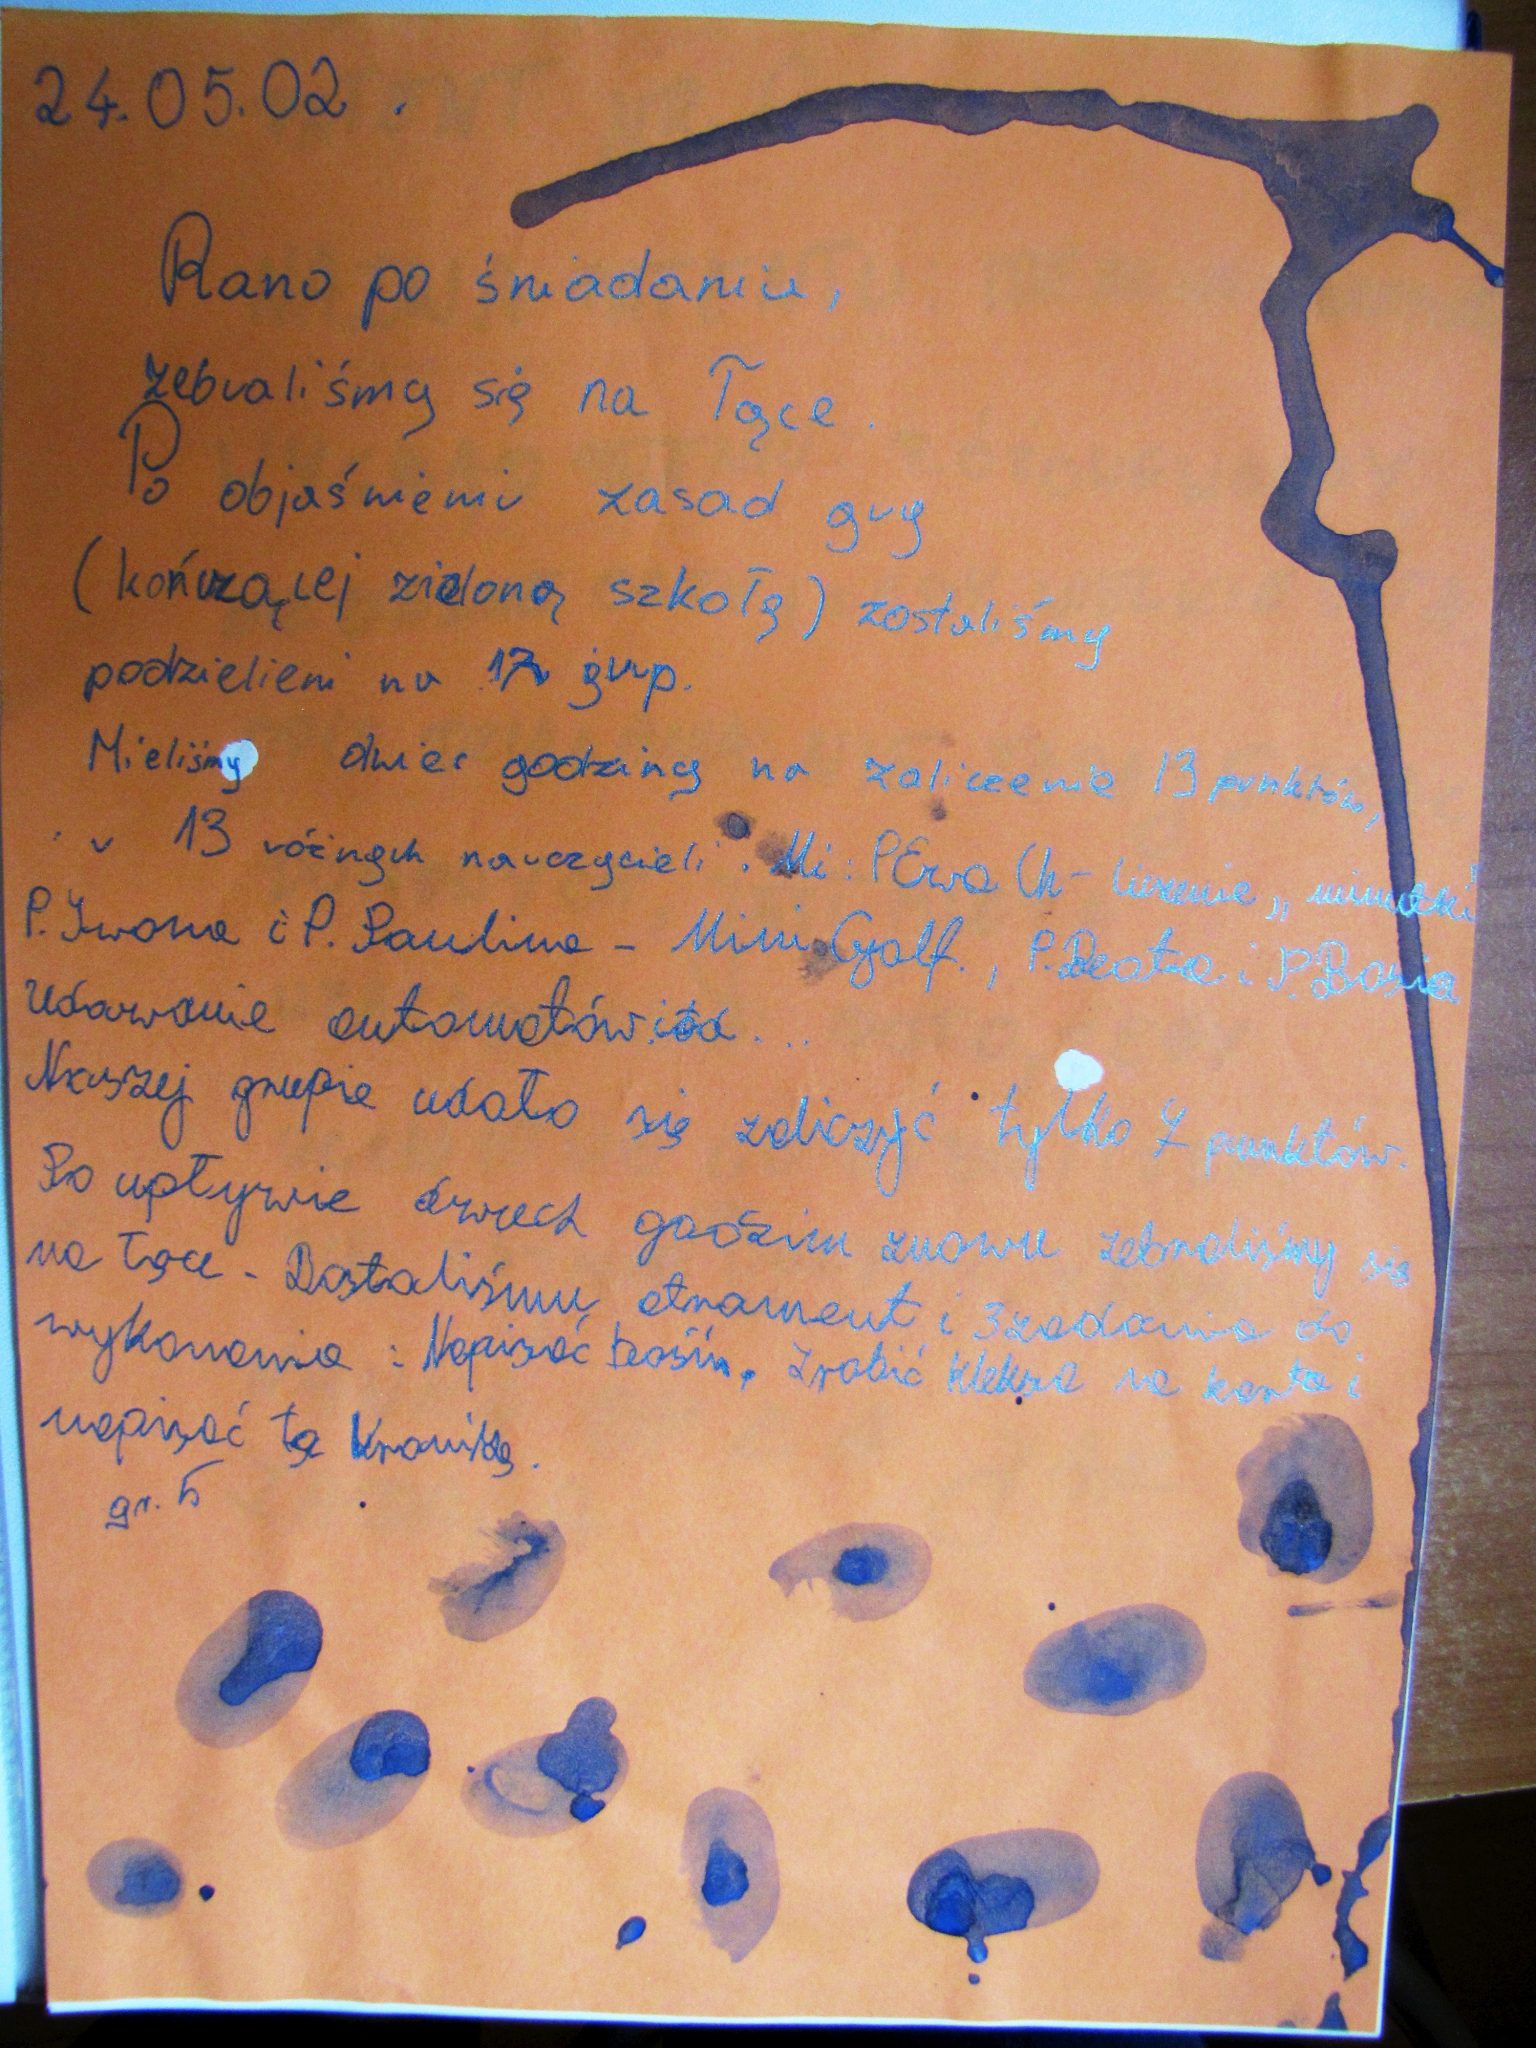 24.05.02.
Rano po śniadaniu,
zebraliśmy się na łące.
Po objaśnieni zasad gry
(kończącej zieloną szkołę) zostaliśmy
podzieleni na 17 grup.
Mieliśmy dwie godziny na zaliczenie 13 punktów,
u 13 różnych nauczycieli. Mi: P Ewa Ch - liczenie „minutki"
P. Iwona i P. Paulina - Mini Golf., P. Beata i P. Basia
udawanie automatów itd...
Naszej grupie udało się zaliczyć tylko 7 punktów.
Po upływie dwóch godzin znowu zebraliśmy się
na łące. Dostaliśmy atrament i 3 zadania do
wykonania: Napisać baśń, zrobić kleksa na karta i
napisać tę kronikę.
gr. 5